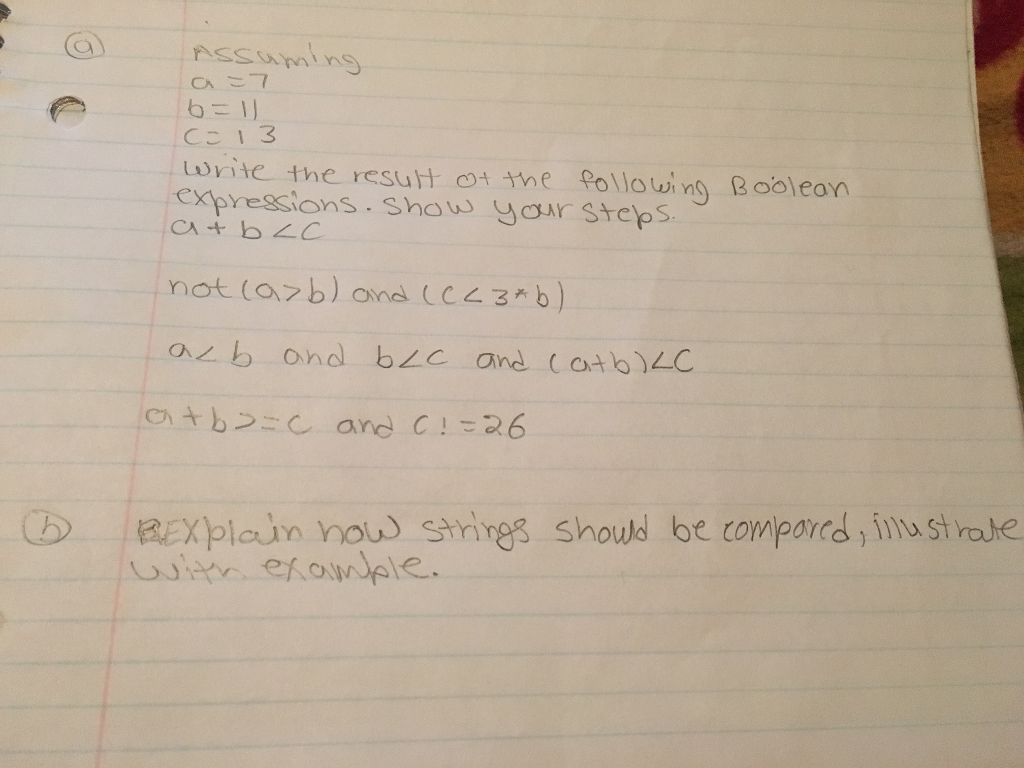 (a) Assuming
a = 7
b = 11
c = 13
Write the result of the following Boolean
expressions. Show your steps.
a + b < c
not (a > b) and (c < 3 * b)
a < b and b < c and (a + b) < c
a + b >= c and c != 26
(b) Explain how strings should be compared, illustrate
with example.